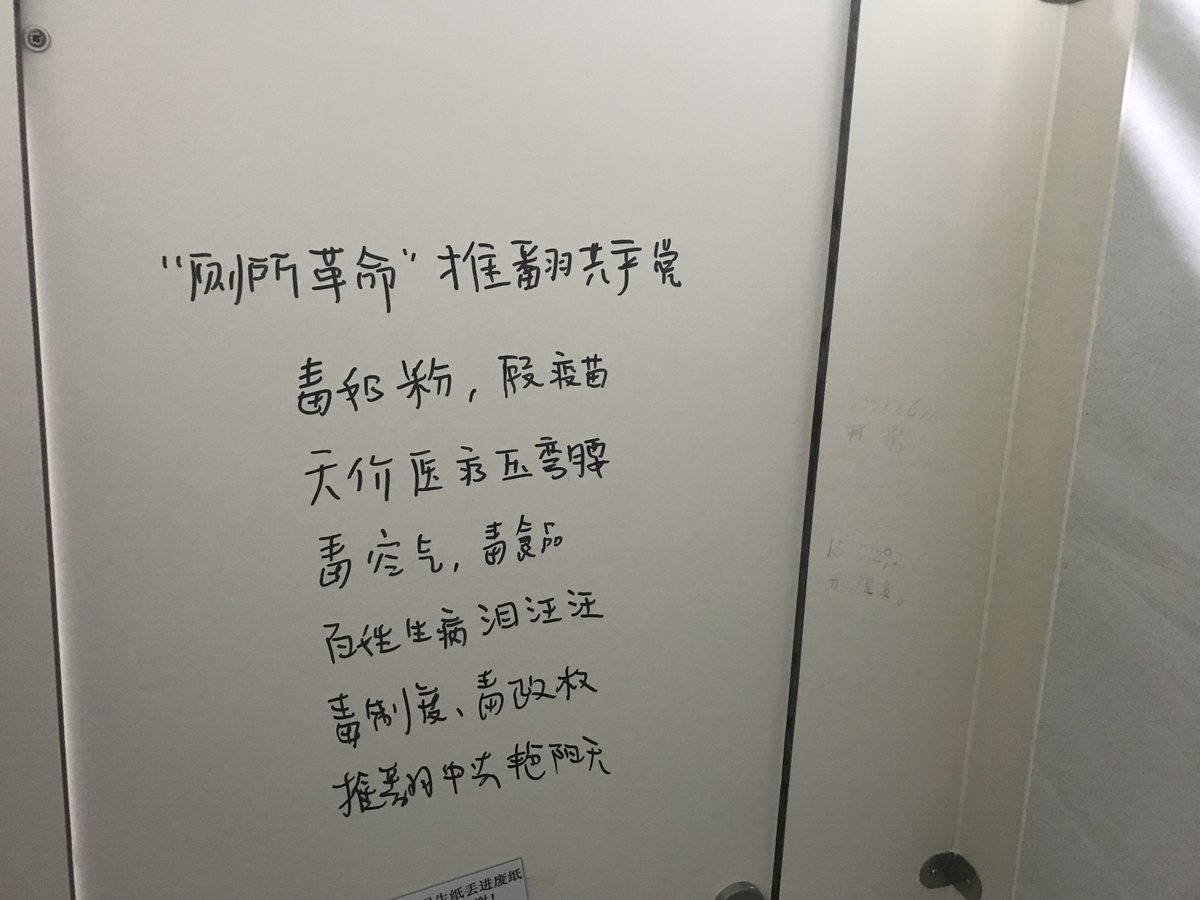 “厕所革命”推翻共产党
毒奶粉，假疫苗
天价医疗压弯腰
毒空气，毒食品
百姓生病泪汪汪
毒制度、毒政权
推翻中共艳阳天
生纸丢进废纸